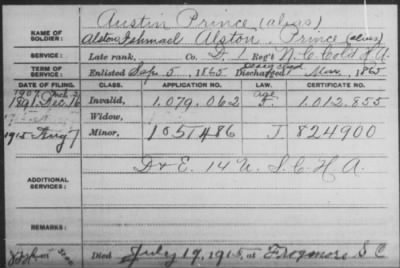 Austin Prince (alias)
NAME OF SOLDIER: Alston, Ishmael Alston, Prince (alias)
SERVICE: Late rank, Co. D, 1 Reg't N.C. Col'd H.A.
TERM OF SERVICE: Enlisted Sep. 5, 1865 Discharged Mar, 1865
DATE OF FILING. CLASS. APPLICATION NO. LAW. CERTIFICATE NO.
1891 Dec. 16 Invalid, 1.079.062 1.012.855
Widow,
1915 Aug 7 Minor, 1051486 J 824900
ADDITIONAL SERVICES: D & E. 14 U.S.C.H.A.
REMARKS:
Died July 19, 1915, at Frogmore S C